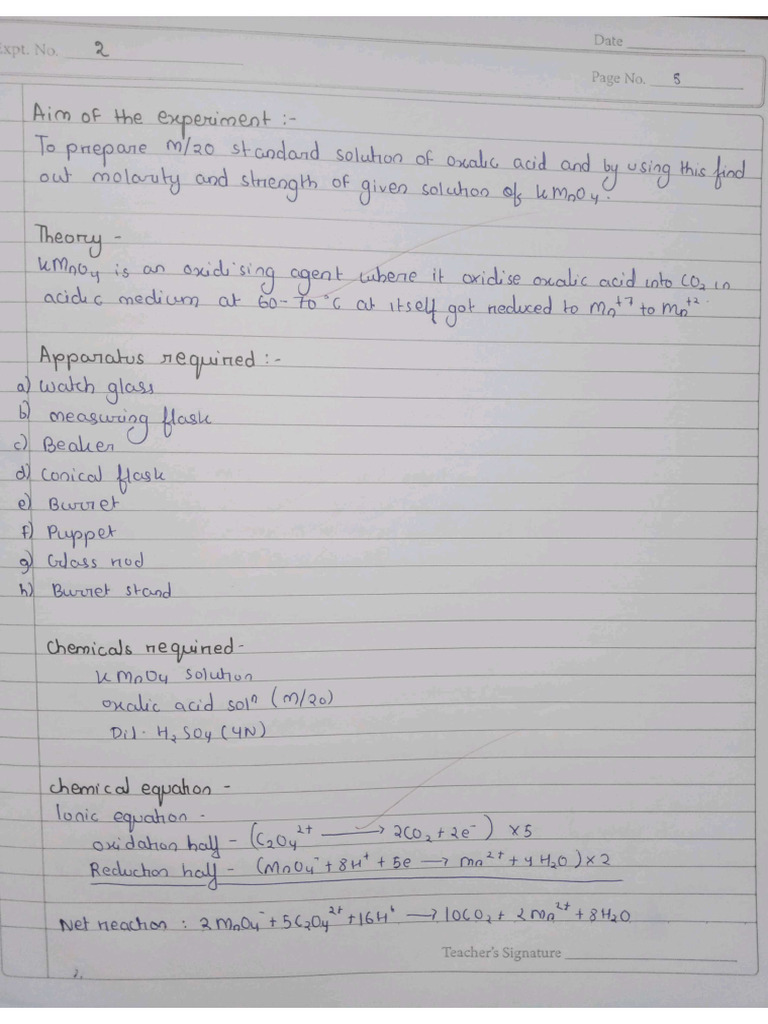 Expt. No. 2
Date
Page No. 5
Aim of the experiment :-
To prepare M/20 standard solution of oxalic acid and by using this find
out molarity and strength of given solution of KMnO4.
Theory -
KMnO4 is an oxidising agent where it oxidise oxalic acid into CO2 in
acidic medium at 60-70°C at itself got reduced to Mn+7 to Mn+2.
Apparatus required :-
a) Watch glass
b) measuring flask
c) Beaker
d) Conical flask
e) Burret
f) Puppet
g) Glass rod
h) Burret stand
Chemicals required -
KMnO4 solution
oxalic acid soln (M/20)
Dil. H2SO4 (4N)
chemical equation -
Ionic equation -
oxidation half - (C2O4^2+ ⟶ 2CO2 + 2e-) ×5
Reduction half - (MnO4^- + 8H+ + 5e ⟶ mn^2+ + 4H2O) ×2
Net reaction : 2MnO4^- + 5C2O4^2+ + 16H+ ⟶ 10CO2 + 2Mn^2+ + 8H2O
Teacher's Signature